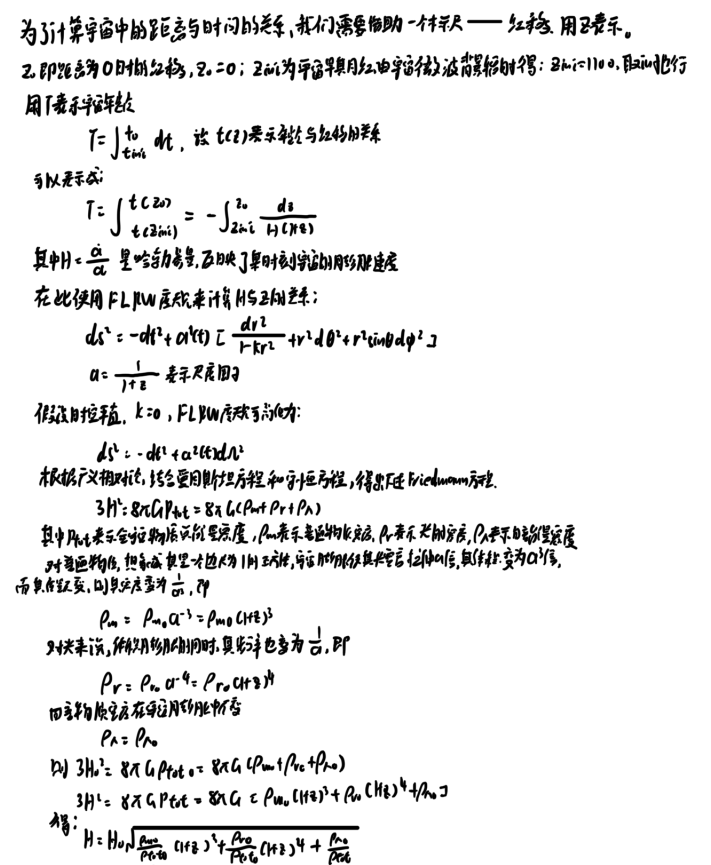 为了计算宇宙中的距离与时间的关系,我们需要借助一个标尺——红移.用z表示。
z₀即距离为0时的红移,z₀=0;zini为宇宙早期红移由宇宙微波背景辐射得:zini=1100.取zini也行
用T表示宇宙年龄
T=∫_{tini}^{t₀} dt,设t(z)表示年龄与红移的关系
可以表示成:
T=∫_{t(zini)}^{t(z₀)} = -∫_{zini}^{z₀} dz/H(1+z)
其中H=ȧ/a 是哈勃常量,反映了某时刻宇宙的膨胀速度
在此使用FLRW度规来计算H与z的关系:
ds²=-dt²+a²(t)[dr²/1-kr²+r²dθ²+r²sinθdφ²]
a=1/1+z 表示尺度因子
假设时空平直,k=0,FLRW度规可简化为:
ds²=-dt²+a²(t)dr²
根据广义相对论,结合爱因斯坦方程和守恒方程,得出下述Friedmann方程.
3H²=8πGρtot=8πG(ρm+ρr+ρΛ)
其中ρtot表示全部物质的能量密度,ρm表示普通物质密度,ρr表示光的密度,ρΛ表示暗能量密度
对普通物质,想象成其是一边长为1的正方体,宇宙膨胀使其长宽高拉伸a倍,其体积变为a³倍,
而质量不变,则其密度变为1/a³,即
ρm=ρm₀a⁻³=ρm₀(1+z)³
对光来说,体积膨胀的同时,其频率也变为1/a,即
ρr=ρr₀a⁻⁴=ρr₀(1+z)⁴
物质密度在宇宙膨胀中不变
ρΛ=ρΛ₀
则 3H₀²=8πGρtot₀=8πG(ρm₀+ρr₀+ρΛ₀)
3H²=8πGρtot=8πG[ρm₀(1+z)³+ρr₀(1+z)⁴+ρΛ₀]
得:
H=H₀√(ρm₀/ρtot₀(1+z)³+ρr₀/ρtot₀(1+z)⁴+ρΛ₀/ρtot)